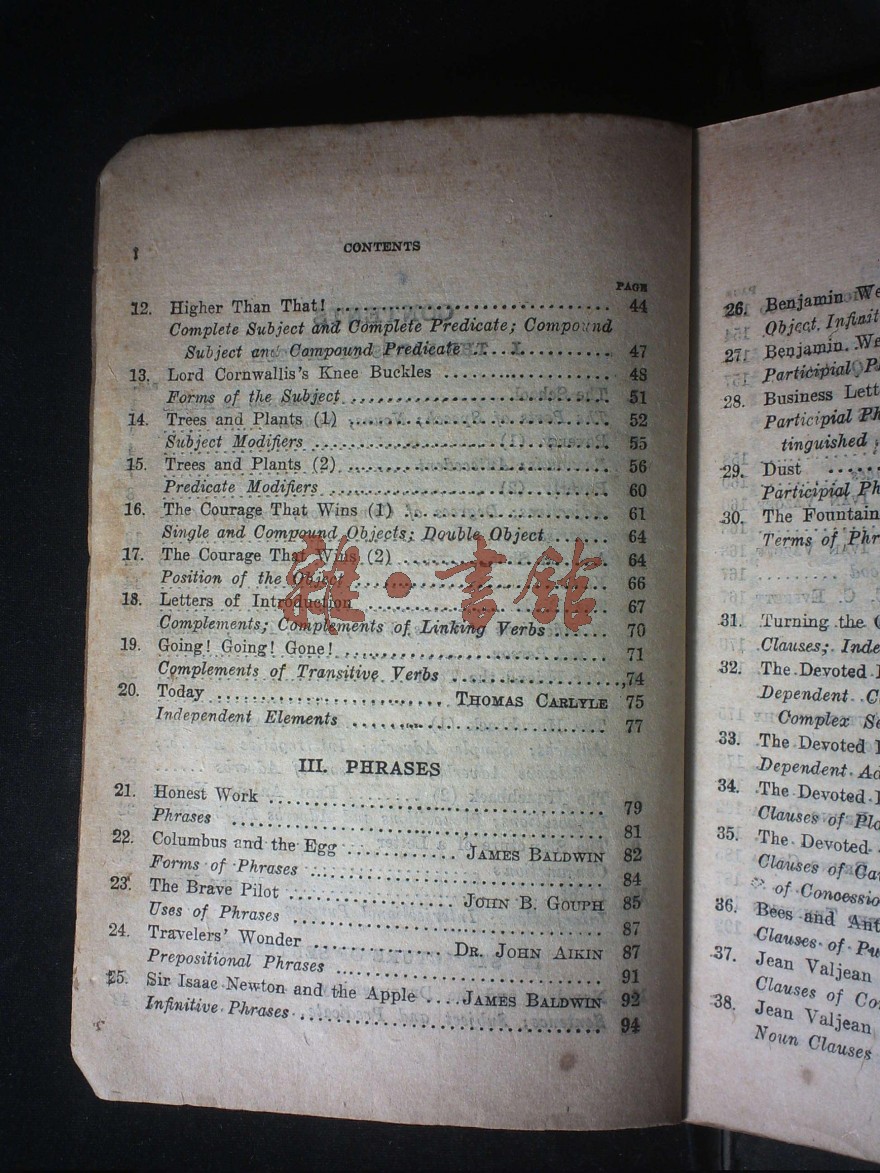 CONTENTS
PAGE
12. Higher Than That! 44
Complete Subject and Complete Predicate; Compound
Subject and Compound Predicate 47
13. Lord Cornwallis's Knee Buckles 48
Forms of the Subject 51
14. Trees and Plants (1) 52
Subject Modifiers 55
15. Trees and Plants (2) 56
Predicate Modifiers 60
16. The Courage That Wins (1) 61
Single and Compound Objects; Double Object 64
17. The Courage That Wins (2) 64
Position of the Object 66
18. Letters of Introduction 67
Complements; Complements of Linking Verbs 70
19. Going! Going! Gone! 71
Complements of Transitive Verbs 74
20. Today THOMAS CARLYLE 75
Independent Elements 77
III. PHRASES
21. Honest Work 79
Phrases 81
22. Columbus and the Egg JAMES BALDWIN 82
Forms of Phrases 84
23. The Brave Pilot JOHN B. GOUPH 85
Uses of Phrases 87
24. Travelers' Wonder DR. JOHN AIKIN 87
Prepositional Phrases 91
25. Sir Isaac Newton and the Apple JAMES BALDWIN 92
Infinitive Phrases 94
雅·書館
26. Benjamin We
Object, Infinit
27. Benjamin We
Participial P
28. Business Lett
Participial Ph
tinguished
29. Dust
Participial Ph
30. The Fountain
Terms of Phr
31. Turning the
Clauses; Inde
32. The Devoted
Dependent C
Complex Se
33. The Devoted
Dependent Ad
34. The Devoted
Clauses of Pla
35. The Devoted
Clauses of Ca
of Concessio
36. Bees and Ant
Clauses of Pu
37. Jean Valjean
Clauses of Co
38. Jean Valjean
Noun Clauses